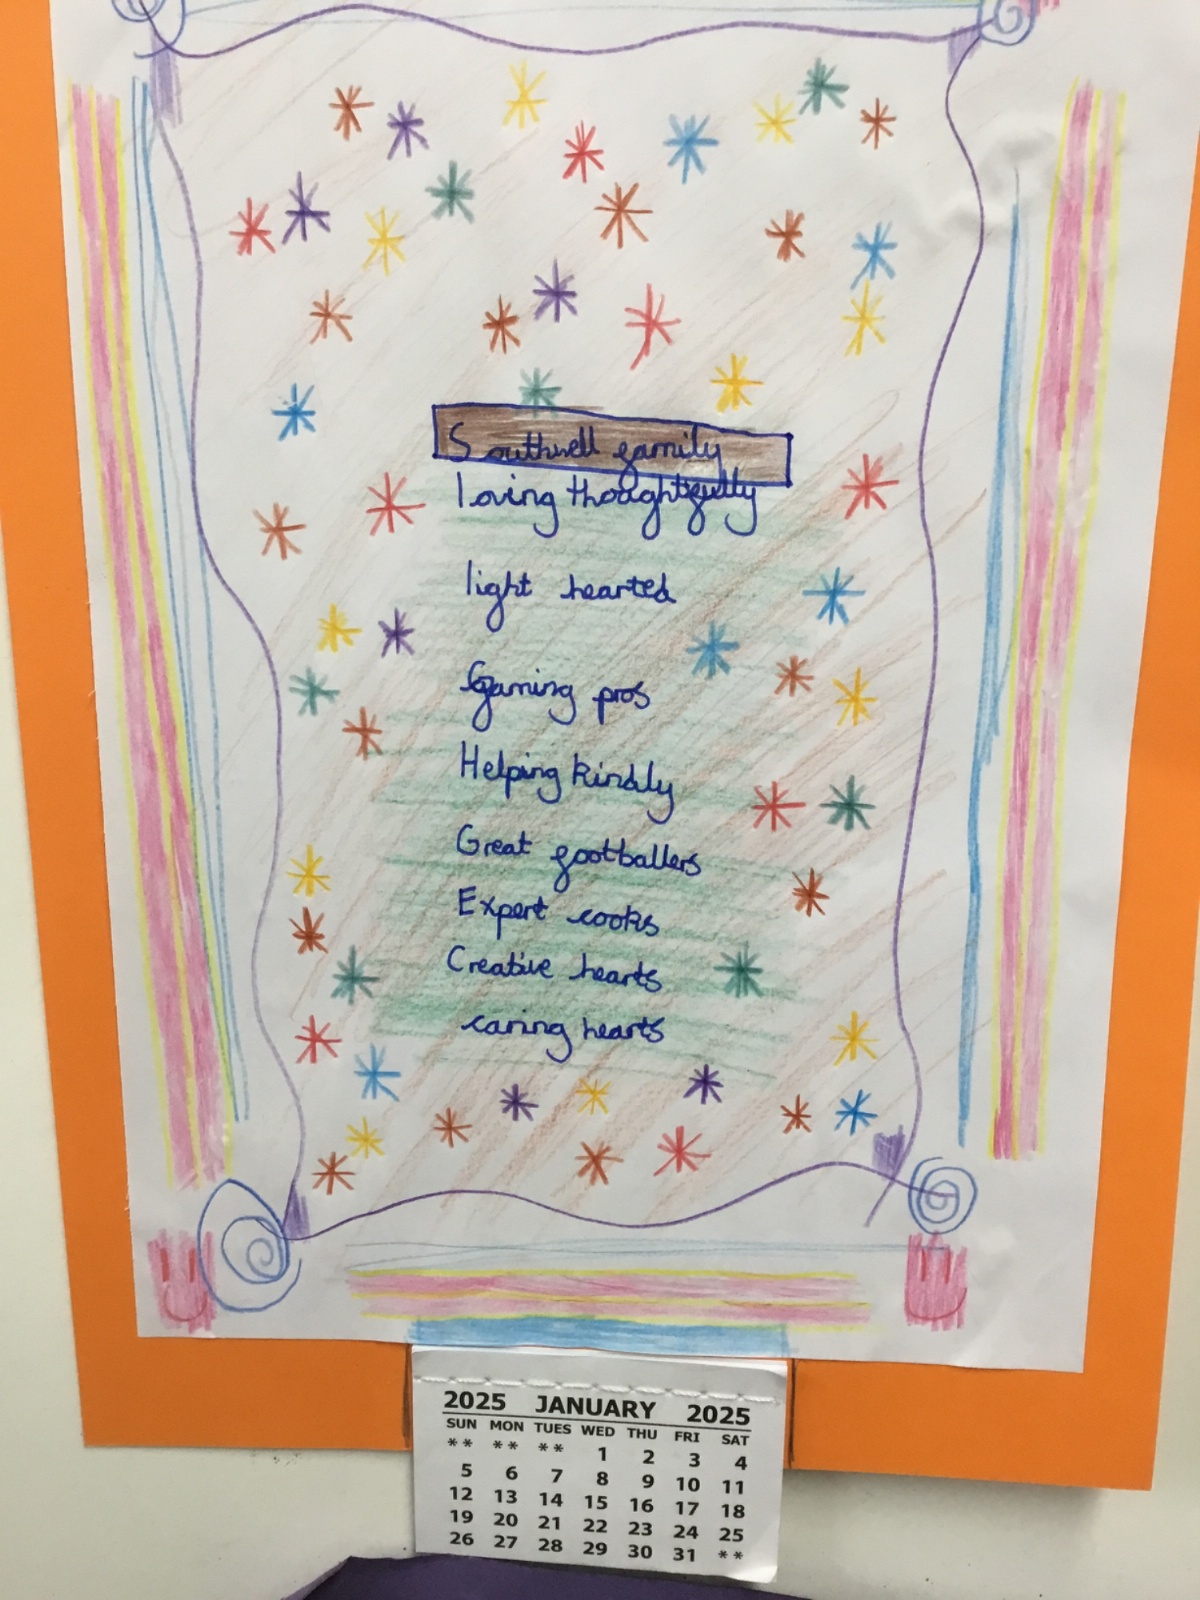 Southwell family
loving thoughtfully
light hearted
Gaming pros
Helping kindly
Great footballers
Expert cooks
Creative hearts
caring hearts
2025 JANUARY 2025
SUN MON TUES WED THU FRI SAT
** ** ** 1 2 3 4
5 6 7 8 9 10 11
12 13 14 15 16 17 18
19 20 21 22 23 24 25
26 27 28 29 30 31 **